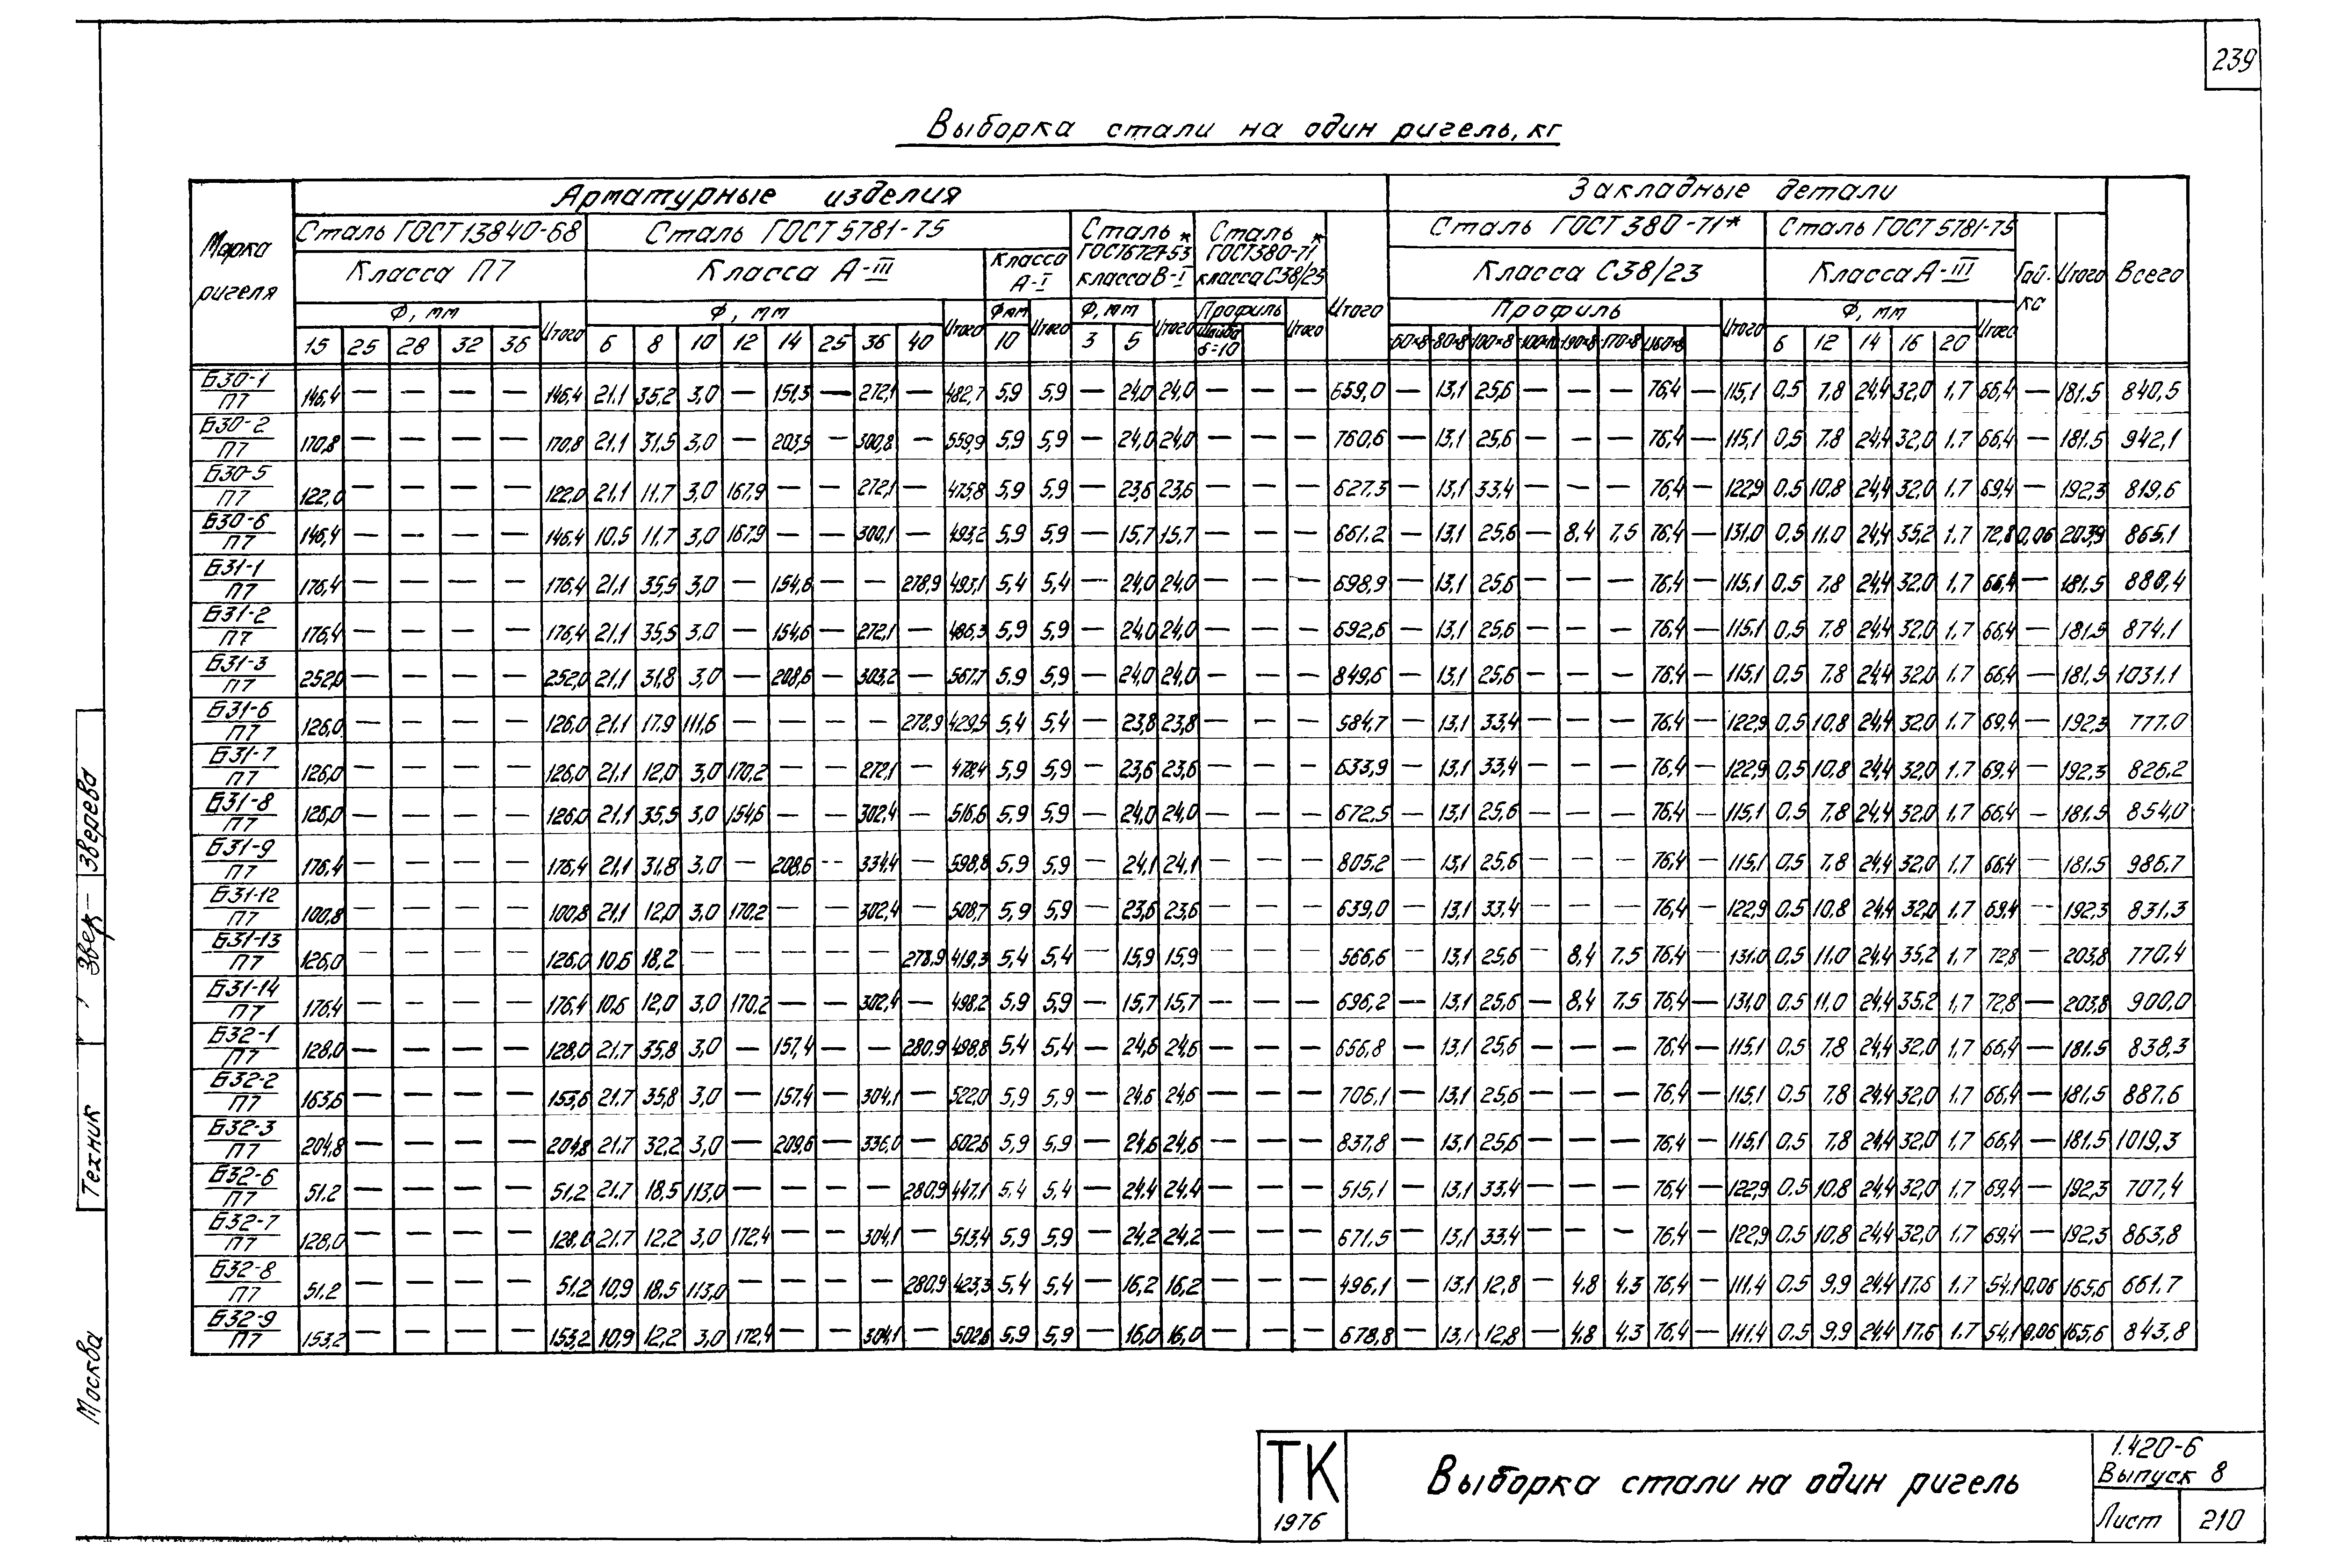 239
Выборка стали на один ригель, кг
Марка ригеля
Арматурные изделия
Закладные детали
Всего
Сталь ГОСТ 13840-68
Сталь ГОСТ 5781-75
Сталь ГОСТ 6727-53* класса В-I
Сталь ГОСТ 380-71* класса С38/23
Итого
Сталь ГОСТ 380-71*
Сталь ГОСТ 5781-75
Гайка
Итого
Класса П7
Класса А-III
Класса А-I
Класса С38/23
Класса А-III
Ф, мм Итого Ф, мм Итого Ф мм Итого Ф, мм Итого Профиль Итого Профиль Итого Ф, мм Итого
15 25 28 32 36 6 8 10 12 14 25 36 40 10 3 5 Шайба δ=10 60×8 80×8 100×8 190×8 170×8 6 12 14 16 20
Б30-1/П7 146,4 — — — — 146,4 21.1 35,2 3,0 — 151,3 — 272,1 — 482,7 5,9 5,9 — 24,0 24,0 — — — 659,0 — 13,1 25,6 — — — 76,4 — 115,1 0,5 7,8 24,4 32,0 1,7 66,4 — 181.5 840,5
Б30-2/П7 170,8 — — — — 170,8 21.1 31,5 3,0 — 203,5 — 300,8 — 559,9 5,9 5,9 — 24,0 24,0 — — — 760,6 — 13,1 25,6 — — — 76,4 — 115,1 0,5 7,8 24,4 32,0 1.7 66,4 — 181.5 942,1
Б30-5/П7 122,0 — — — — 122,0 21.1 11.7 3,0 167,9 — — 272,1 — 475,8 5,9 5,9 — 23,6 23,6 — — — 627.3 — 13,1 33,4 — — — 76,4 — 122,9 0,5 10,8 24,4 32,0 1.7 69,4 — 192,3 819,6
Б30-6/П7 146,4 — — — — 146,4 10.5 11.7 3,0 167,9 — — 300,1 — 493,2 5,9 5,9 — 15,7 15,7 — — — 661.2 — 13,1 25,6 — 8,4 7,5 76,4 — 131,0 0,5 11,0 24,4 35,2 1,7 72,8 0,06 203,9 865,1
Б31-1/П7 176,4 — — — — 176,4 21,1 35,5 3,0 — 154,6 — — 278,9 493,1 5,4 5,4 — 24,0 24,0 — — — 698,9 — 13,1 25,6 — — — 76,4 — 115,1 0,5 7,8 24,4 32,0 1,7 66,4 — 181.5 880,4
Б31-2/П7 176,4 — — — — 176,4 21,1 35,5 3,0 — 154,6 — 272,1 — 486,3 5,9 5,9 — 24,0 24,0 — — — 692,6 — 13,1 25,6 — — — 76,4 — 115,1 0,5 7,8 24,4 32,0 1,7 66,4 — 181.5 874,1
Б31-3/П7 252,0 — — — — 252,0 21,1 31,8 3,0 — 208,6 — 303,2 — 567,7 5.9 5,9 — 24,0 24,0 — — — 849,6 — 13,1 25,6 — — — 76,4 — 115,1 0,5 7,8 24,4 32,0 1,7 66,4 — 181,5 1031.1
Б31-6/П7 126,0 — — — — 126,0 21.1 17.9 111,6 — — — — 278,9 429,5 5,4 5,4 — 23,8 23,8 — — — 584,7 — 13,1 33,4 — — — 76,4 — 122,9 0,5 10,8 24,4 32,0 1.7 69,4 — 192,3 777.0
Б31-7/П7 126,0 — — — — 126,0 21.1 12,0 3,0 170,2 — — 272,1 — 478,4 5,9 5,9 — 23,6 23,6 — — — 633,9 — 13,1 33,4 — — — 76,4 — 122,9 0,5 10,8 24,4 32,0 1.7 69,4 — 192,3 826,2
Б31-8/П7 126,0 — — — — 126,0 21.1 35,5 3,0 154,6 — — 302,4 — 516,6 5,9 5,9 — 24,0 24,0 — — — 672,5 — 13,1 25,6 — — — 76,4 — 115,1 0,5 7,8 24,4 32,0 1,7 66,4 — 181.5 854,0
Б31-9/П7 176,4 — — — — 176,4 21,1 31,8 3,0 — 208,6 — 334,4 — 598,8 5,9 5,9 — 24,1 24,1 — — — 805.2 — 13,1 25,6 — — — 76,4 — 115,1 0,5 7,8 24,4 32,0 1,7 66,4 — 181.5 986,7
Б31-12/П7 100,8 — — — — 100,8 21,1 12,0 3,0 170,2 — — 302,4 — 508,7 5,9 5,9 — 23,6 23,6 — — — 639,0 — 13,1 33,4 — — — 76,4 — 122,9 0,5 10,8 24,4 32,0 1,7 69,4 — 192,3 831.3
Б31-13/П7 126,0 — — — — 126,0 10,6 18,2 — — — — — 278,9 419,3 5,4 5,4 — 15,9 15,9 — — — 566,6 — 13,1 25,6 — 8,4 7.5 76,4 — 131.0 0,5 11,0 24,4 35,2 1,7 72,8 — 203,8 770,4
Б31-14/П7 176,4 — — — — 176,4 10,6 12,0 3,0 170,2 — — 302,4 — 498,2 5,9 5,9 — 15,7 15,7 — — — 696,2 — 13,1 25,6 — 8,4 7.5 76,4 — 131,0 0.5 11,0 24,4 35,2 1,7 72,8 — 203,8 900,0
Б32-1/П7 128,0 — — — — 128,0 21.7 35,8 3,0 — 157,4 — — 280,9 498,8 5,4 5,4 — 24,6 24,6 — — — 656,8 — 13,1 25,6 — — — 76,4 — 115,1 0,5 7,8 24,4 32,0 1,7 66,4 — 181.5 838,3
Б32-2/П7 163,6 — — — — 153,6 21.7 35,8 3,0 — 157,4 — 304,1 — 522,0 5,9 5,9 — 24,6 24,6 — — — 706,1 — 13,1 25,6 — — — 76,4 — 115,1 0,5 7,8 24,4 32,0 1,7 66,4 — 181,5 887.6
Б32-3/П7 204,8 — — — — 204,8 21.7 32,2 3,0 — 209,6 — 336,0 — 602,6 5,9 5,9 — 24,6 24,6 — — — 837,8 — 13,1 25,6 — — — 76,4 — 115,1 0,5 7,8 24,4 32,0 1,7 66,4 — 181.5 1019,3
Б32-6/П7 51.2 — — — — 51.2 21.7 18,5 113,0 — — — — 280,9 447,1 5.4 5,4 — 24,4 24,4 — — — 515,1 — 13,1 33,4 — — — 76,4 — 122,9 0,5 10,8 24,4 32,0 1,7 69,4 — 192,3 707,4
Б32-7/П7 128,0 — — — — 128,0 21.7 12,2 3,0 172,4 — — 304,1 — 513,4 5,9 5,9 — 24,2 24,2 — — — 671.5 — 13,1 33,4 — — — 76,4 — 122,9 0,5 10,8 24,4 32,0 1.7 69,4 — 192,3 863,8
Б32-8/П7 51.2 — — — — 51.2 10,9 18,5 113,0 — — — — 280,9 423,3 5,4 5,4 — 16,2 16,2 — — — 496,1 — 13,1 12,8 — 4,8 4,3 76,4 — 111,4 0,5 9,9 24,4 17,6 1,7 54,1 0,06 165,6 661.7
Б32-9/П7 153,2 — — — — 153,2 10,9 12,2 3,0 172,4 — — 304,1 — 502,6 5,9 5,9 — 16,0 16,0 — — — 678,8 — 13,1 12,8 — 4,8 4,3 76,4 — 111,4 0,5 9,9 24,4 17,6 1.7 54,1 0,06 165,6 843,8
Москва Техник Звер Зверева
ТК
1976
Выборка стали на один ригель
1.420-6
Выпуск 8
Лист 210